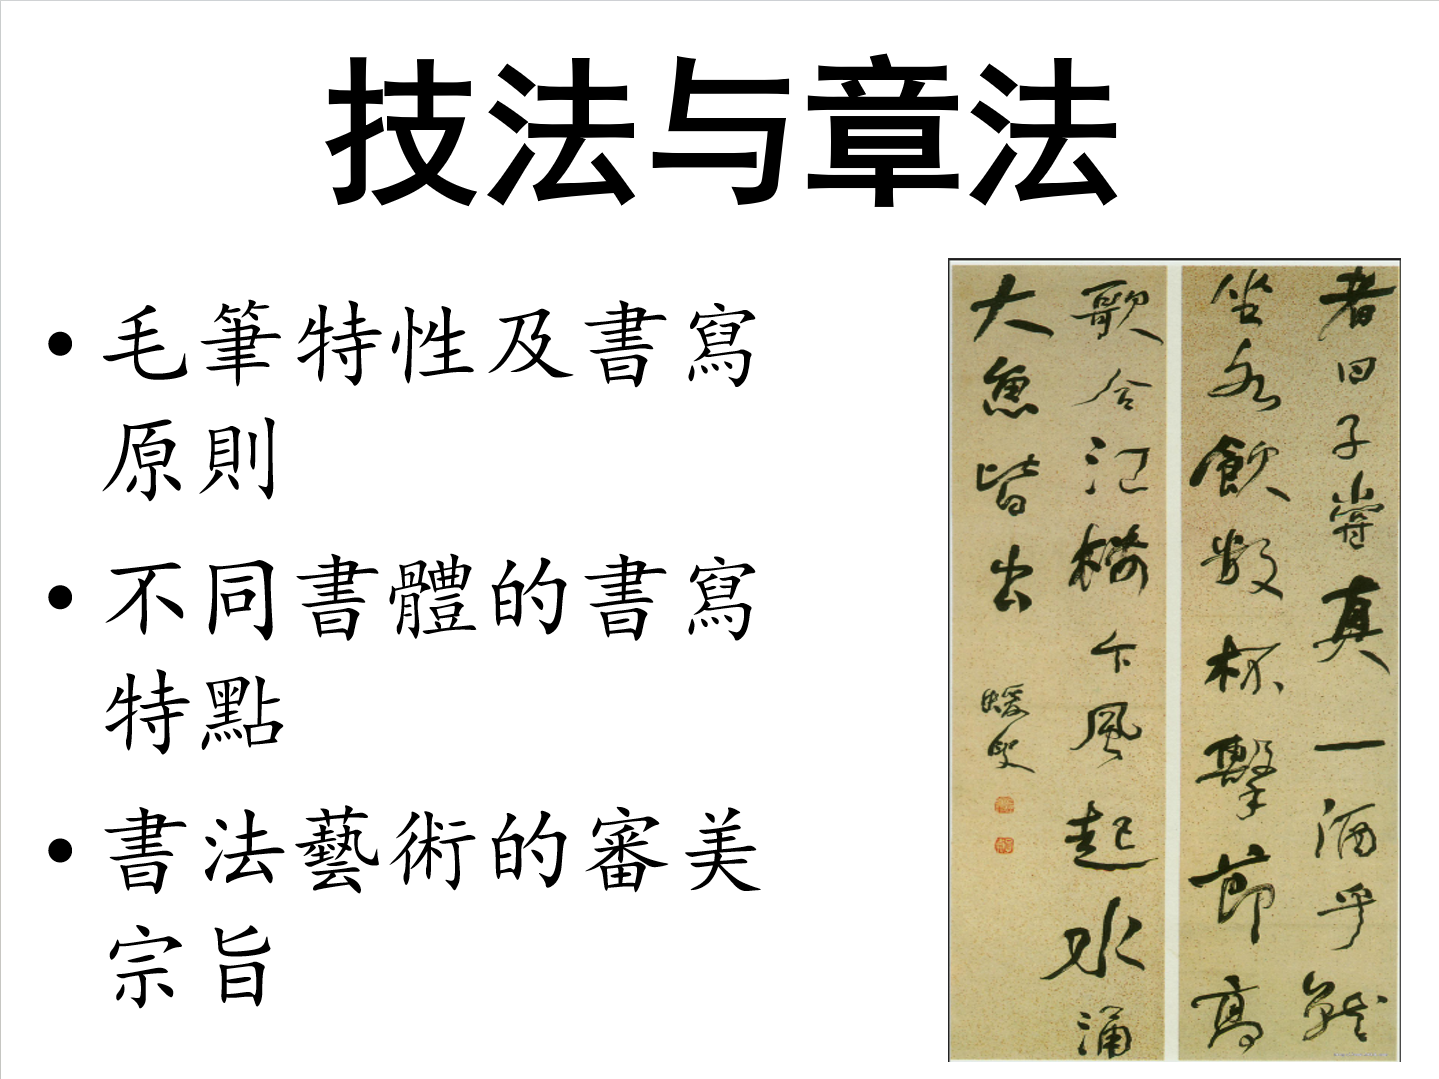 技法与章法
• 毛筆特性及書寫
原則
• 不同書體的書寫
特點
• 書法藝術的審美
宗旨
者曰子嘗真一酒乎就
坐各飲數杯擊節高
歌合江樓下風起水涌
大魚皆出
蝯叟